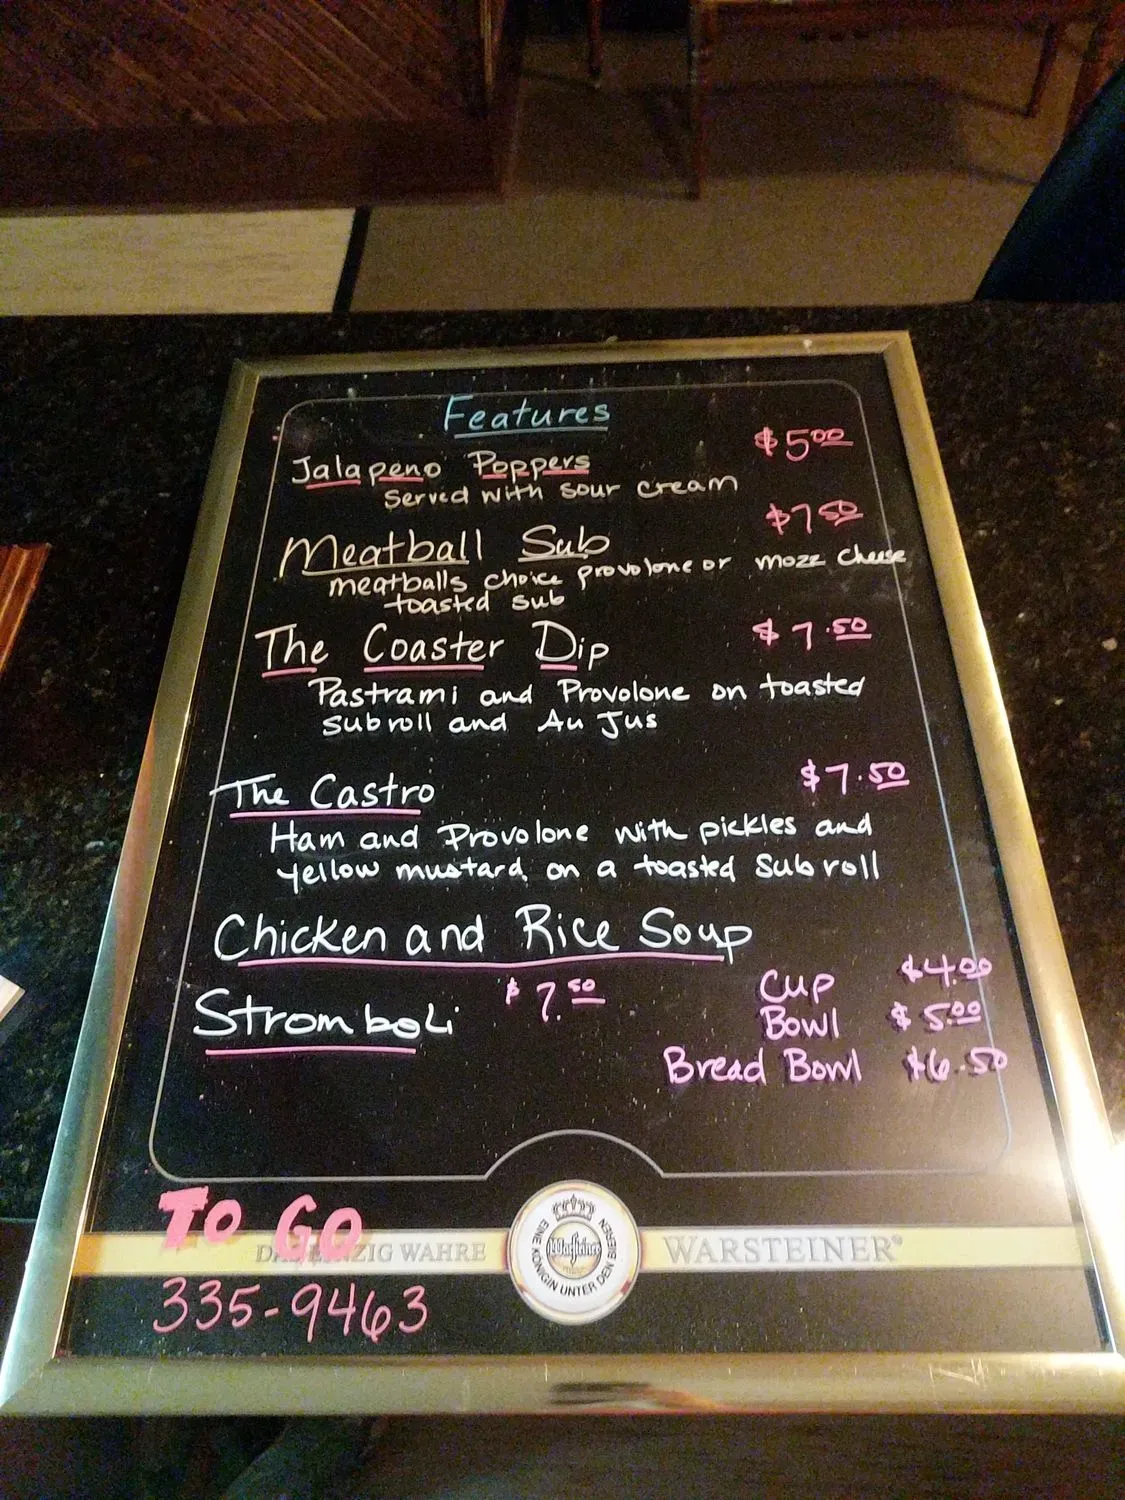 Features
Jalapeno Poppers $5.00
Served with sour cream
Meatball Sub $7.50
meatballs choice provolone or mozz cheese
toasted sub
The Coaster Dip $7.50
Pastrami and Provolone on toasted
Sub roll and Au Jus
The Castro $7.50
Ham and Provolone with pickles and
yellow mustard on a toasted Sub roll
Chicken and Rice Soup
Cup $4.00
Stromboli $7.50
Bowl $5.00
Bread Bowl $6.50
TO GO
WAHRE
WARSTEINER®
Warsteiner
EINE KÖNIGIN UNTER DEN BIEREN
335-9463